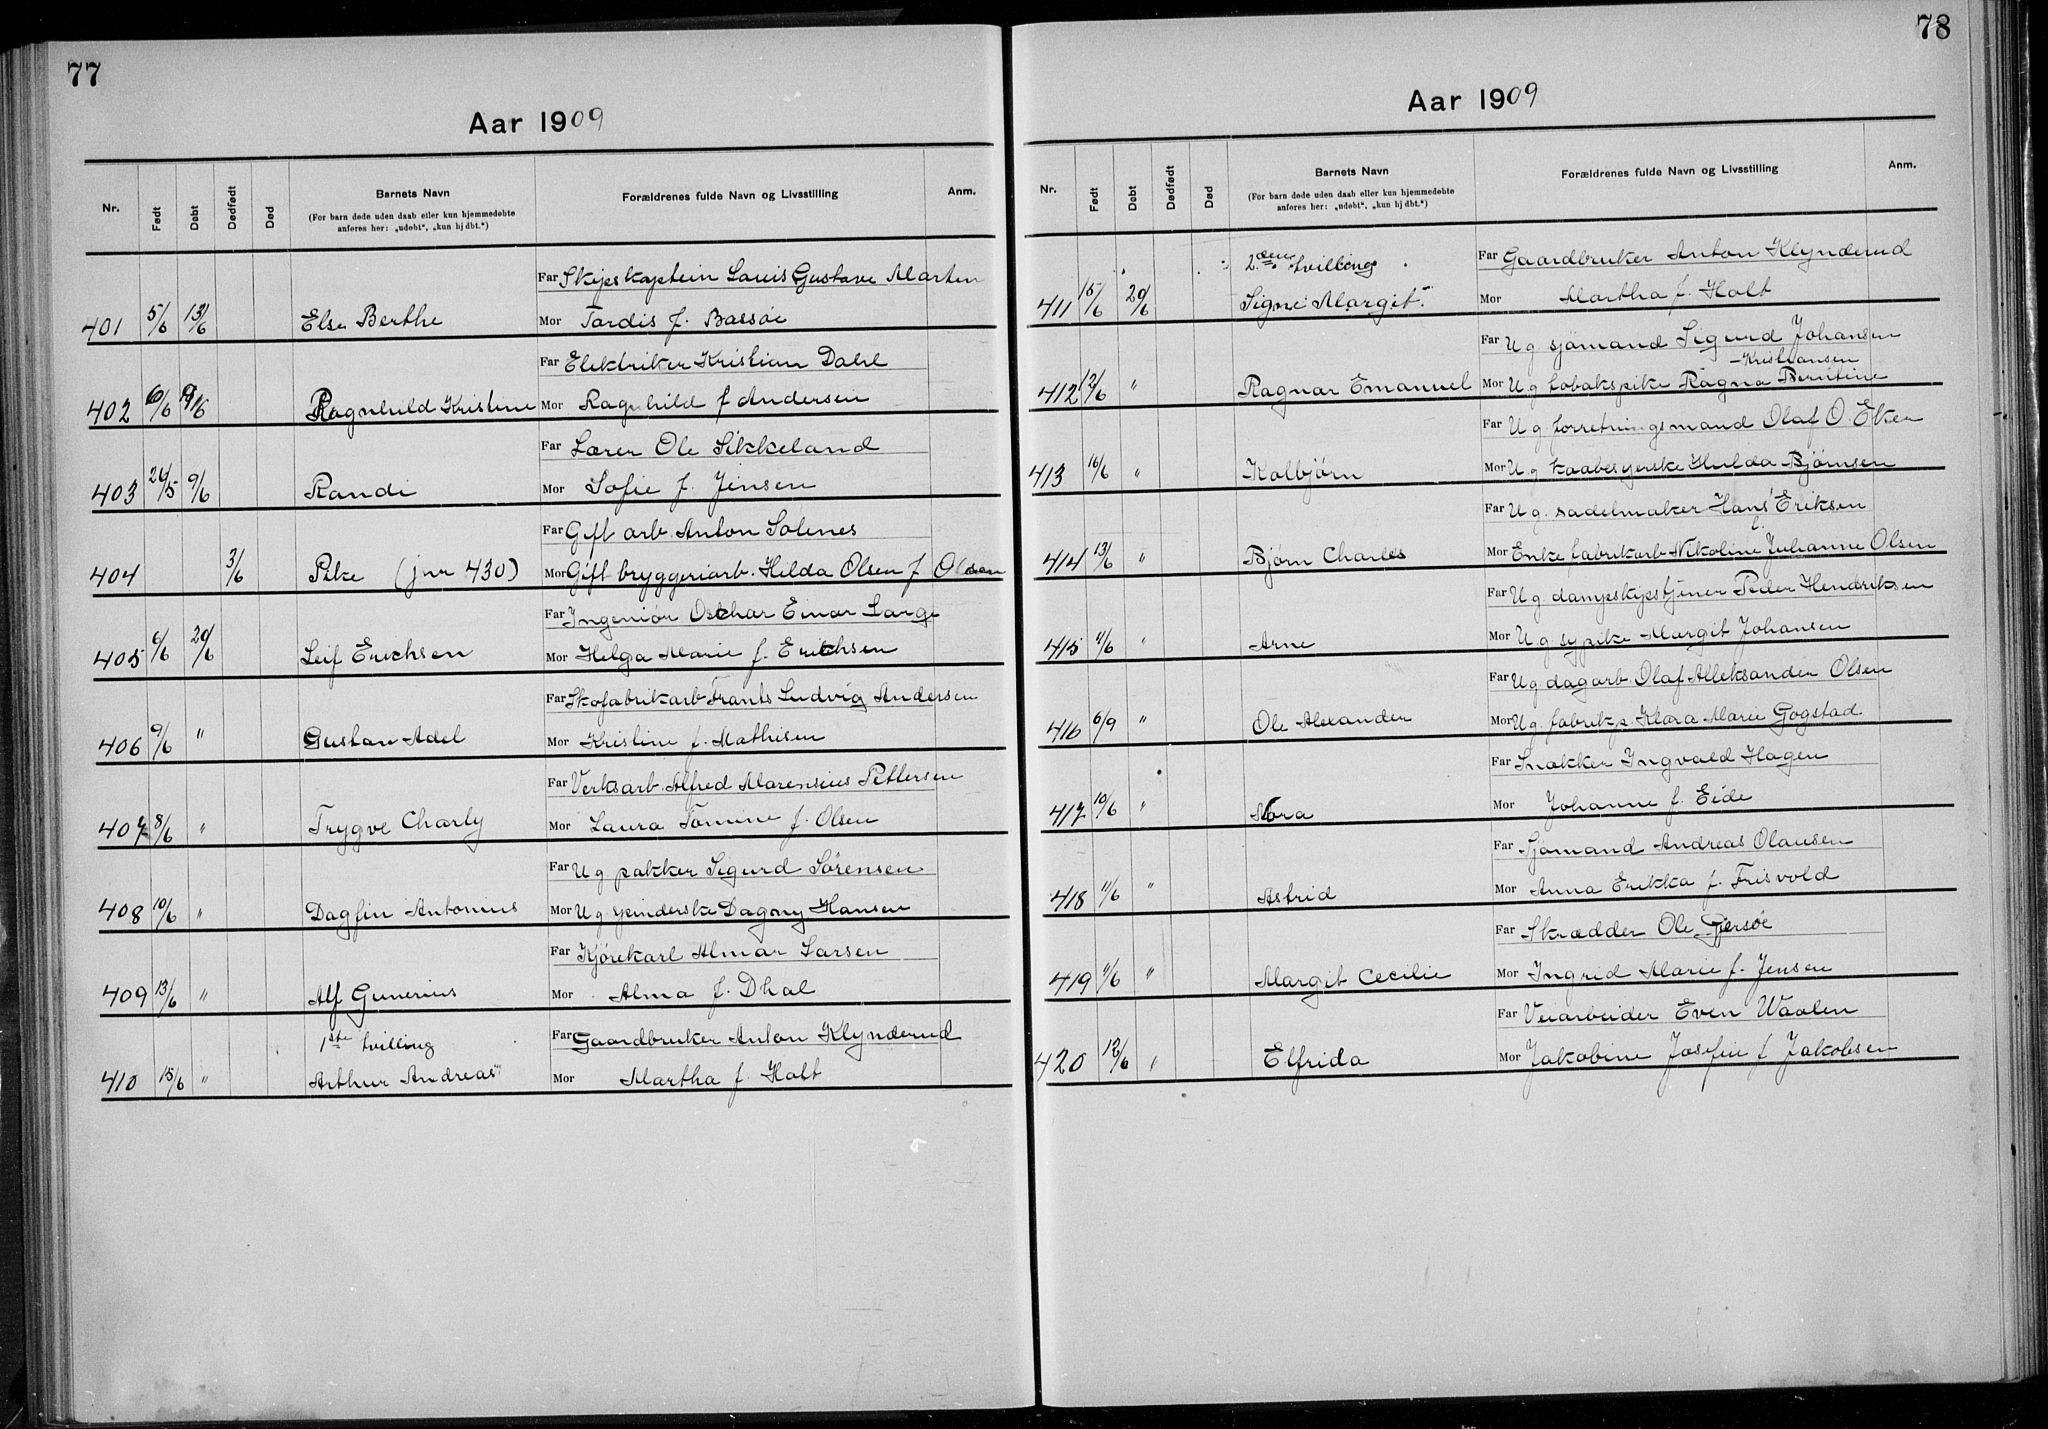 77
Aar 1909
Nr. Født Døbt Dødfødt Død Barnets Navn Forældrenes fulde Navn og Livsstilling Anm.
(For barn døde uden daab eller kun hjemmedøbte
anføres her: „udøbt", „kun hj dbt.")
Far Skipskaptein Louis Gustave Marten
401 5/6 13/6 Else Berthe Mor Tordis f. Bassøe
Far Elektriker Kristian Dahl
402 6/6 Ragnhild Kristine Mor Ragnhild f Andersen
Far Lærer Ole Sikkeland
403 9/6 Randi Mor Sofie f. Jensen
Far Gift arb. Anton Solenes
404 3/6 Pike (jnr 430) Mor Gift bryggeriarb. Hilda Olsen f Olsen
Far Ingeniør Oschar Einar Lange
405 6/6 20/6 Leif Erichsen Mor Helga Marie f. Erichsen
Far Skofabrikarb Frants Ludvig Andersen
406 9/6 " Gustav Adel Mor Kristine f. Mathisen
Far Verksarb. Alfred Marensius Pettersen
407 8/6 " Trygve Charly Mor Laura Tomine f. Olsen
Far Ug pakker Sigurd Sörensen
408 10/6 " Dagfin Antonius Mor Ug spinderske Dagny Hansen
Far Kjörekarl Almar Larsen
409 13/6 " Alf Gunerius Mor Alma f. Dhal
1ste tvilling Far Gaardbruker Anton Klynderud
410 15/6 " Arthur Andreas Mor Martha f. Holt
78
Aar 1909
Nr. Født Døbt Dødfødt Død Barnets Navn Forældrenes fulde Navn og Livsstilling Anm.
(For barn døde uden daab eller kun hjemmedøbte
anføres her: „udøbt", „kun hj dbt.")
2den tvilling Far Gaardbruker Anton Klynderud
411 15/6 20/6 Signe Margit Mor Martha f. Holt
Far Ug sjömand Sigurd Johansen
Kristiansen
412 12/6 " Ragnar Emanuel Mor Ug tobakspike Ragna Berntine
Far Ug forretningsmand Olaf O. Eker
413 16/6 " Kolbjörn Mor Ug kaabesyerske Hulda Bjørnsen
Far Ug. sadelmaker Hans Eriksen
414 13/6 " Bjørn Charles Mor Enke fabrikarb Nikoline Johanne Olsen
Far Ug dampskipstjener Peder Hendriksen
415 " Arne Mor Ug sypike Margit Johansen
Far Ug dagarb. Olaf Alleksander Olsen
416 6/9 " Ole Alexander Mor Ug. fabrikp. Klara Marie Gogstad
Far Snekker Ingvald Hagen
417 10/6 " Nora Mor Johanne f. Eide
Far Sjömand Andreas Olausen
418 11/6 " Astrid Mor Anna Erikka f. Frisvold
Far Skrædder Ole Gjersöe
419 " Margit Cecilie Mor Ingrid Marie f. Jensen
Far Veiarbeider Even Waalen
420 12/6 " Elfrida Mor Jakobine Josefine f Jakobsen